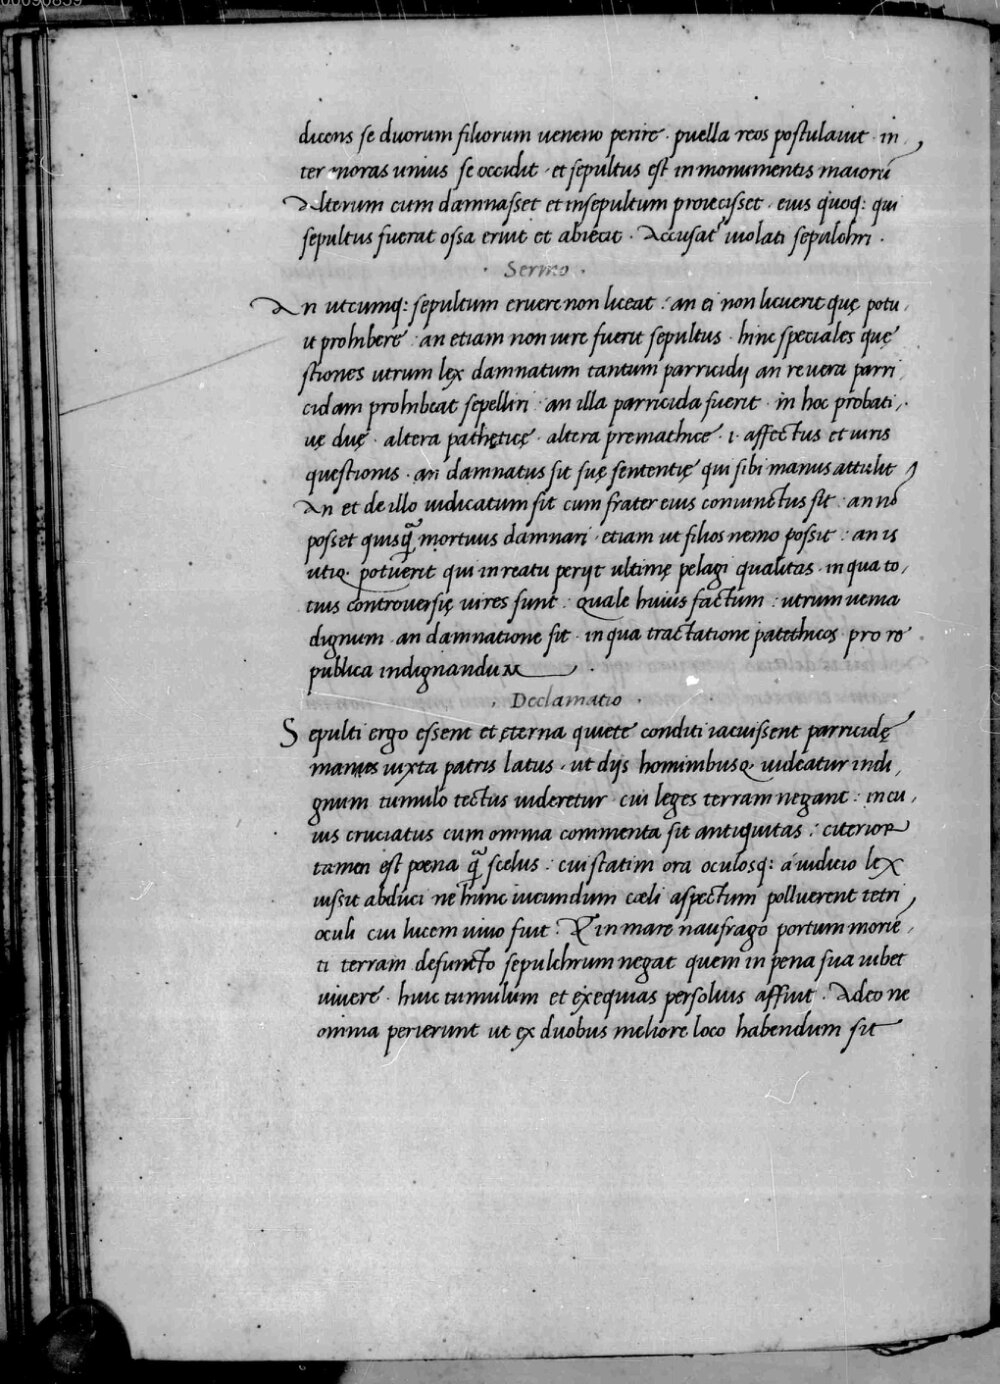 00090859
dicens se duorum filiorum ueneno perire · puella reos postulauit · in
ter moras unius se occidit · et sepultus est in monumentis maiorū
Alterum cum damnasset et insepultum proiecisset · eius quoq: qui
sepultus fuerat ossa eruit et abiecit · Accusatʳ uiolati sepulchri ·
· Sermo ·
An utcumq: sepultum eruere non liceat : an ei non licuerit quę potu
it prohibere : an etiam non iure fuerit sepultus · hinc speciales quę
stiones utrum lex damnatum tantum parricidij an re uera parri
cidam prohibeat sepelliri : an illa parricida fuerit · in hoc probati
uę duę · altera pathęticę · altera premathice · i · affectus et iuris
questionis · an damnatus sit suę sententię qui sibi manus attulit
An et de illo iudicatum sit cum frater eius coniunctus sit : an nō
posset quisq̃ mortuus damnari · etiam ut filios nemo possit : an is
utiq. potuerit qui in reatu perijt ultimę pelagi qualitas · in qua to
tius controuersię uires sunt : Quale huius factum : utrum uenia
dignum · an damnatione sit · in qua tractatione patethicos pro re
publica indignandum ·
· Declamatio ·
Sepulti ergo essent et ęterna quiete conditi iacuissent parricidę
manies iuxta patris latus · ut dijs hominibusq. uideatur indi
gnum tumulo tectus uideretur cui leges terram negant : in cu
ius cruciatus cum omnia commenta sit antiquitas : citerior
tamen est poena q̃ scelus : cui statim ora oculosq: a iudicio lex
iussit abduci ne hunc iucundum cæli aspectum polluerent tetri
oculi cui lucem uiuo fuit : Et in mare naufrago portum morie
ti terram defuncto sepulchrum negat quem in pena sua iubet
uiuere · huic tumulum et exequias persoluis affiuit · Adeo ne
omnia perierunt ut ex duobus meliore loco habendum sit